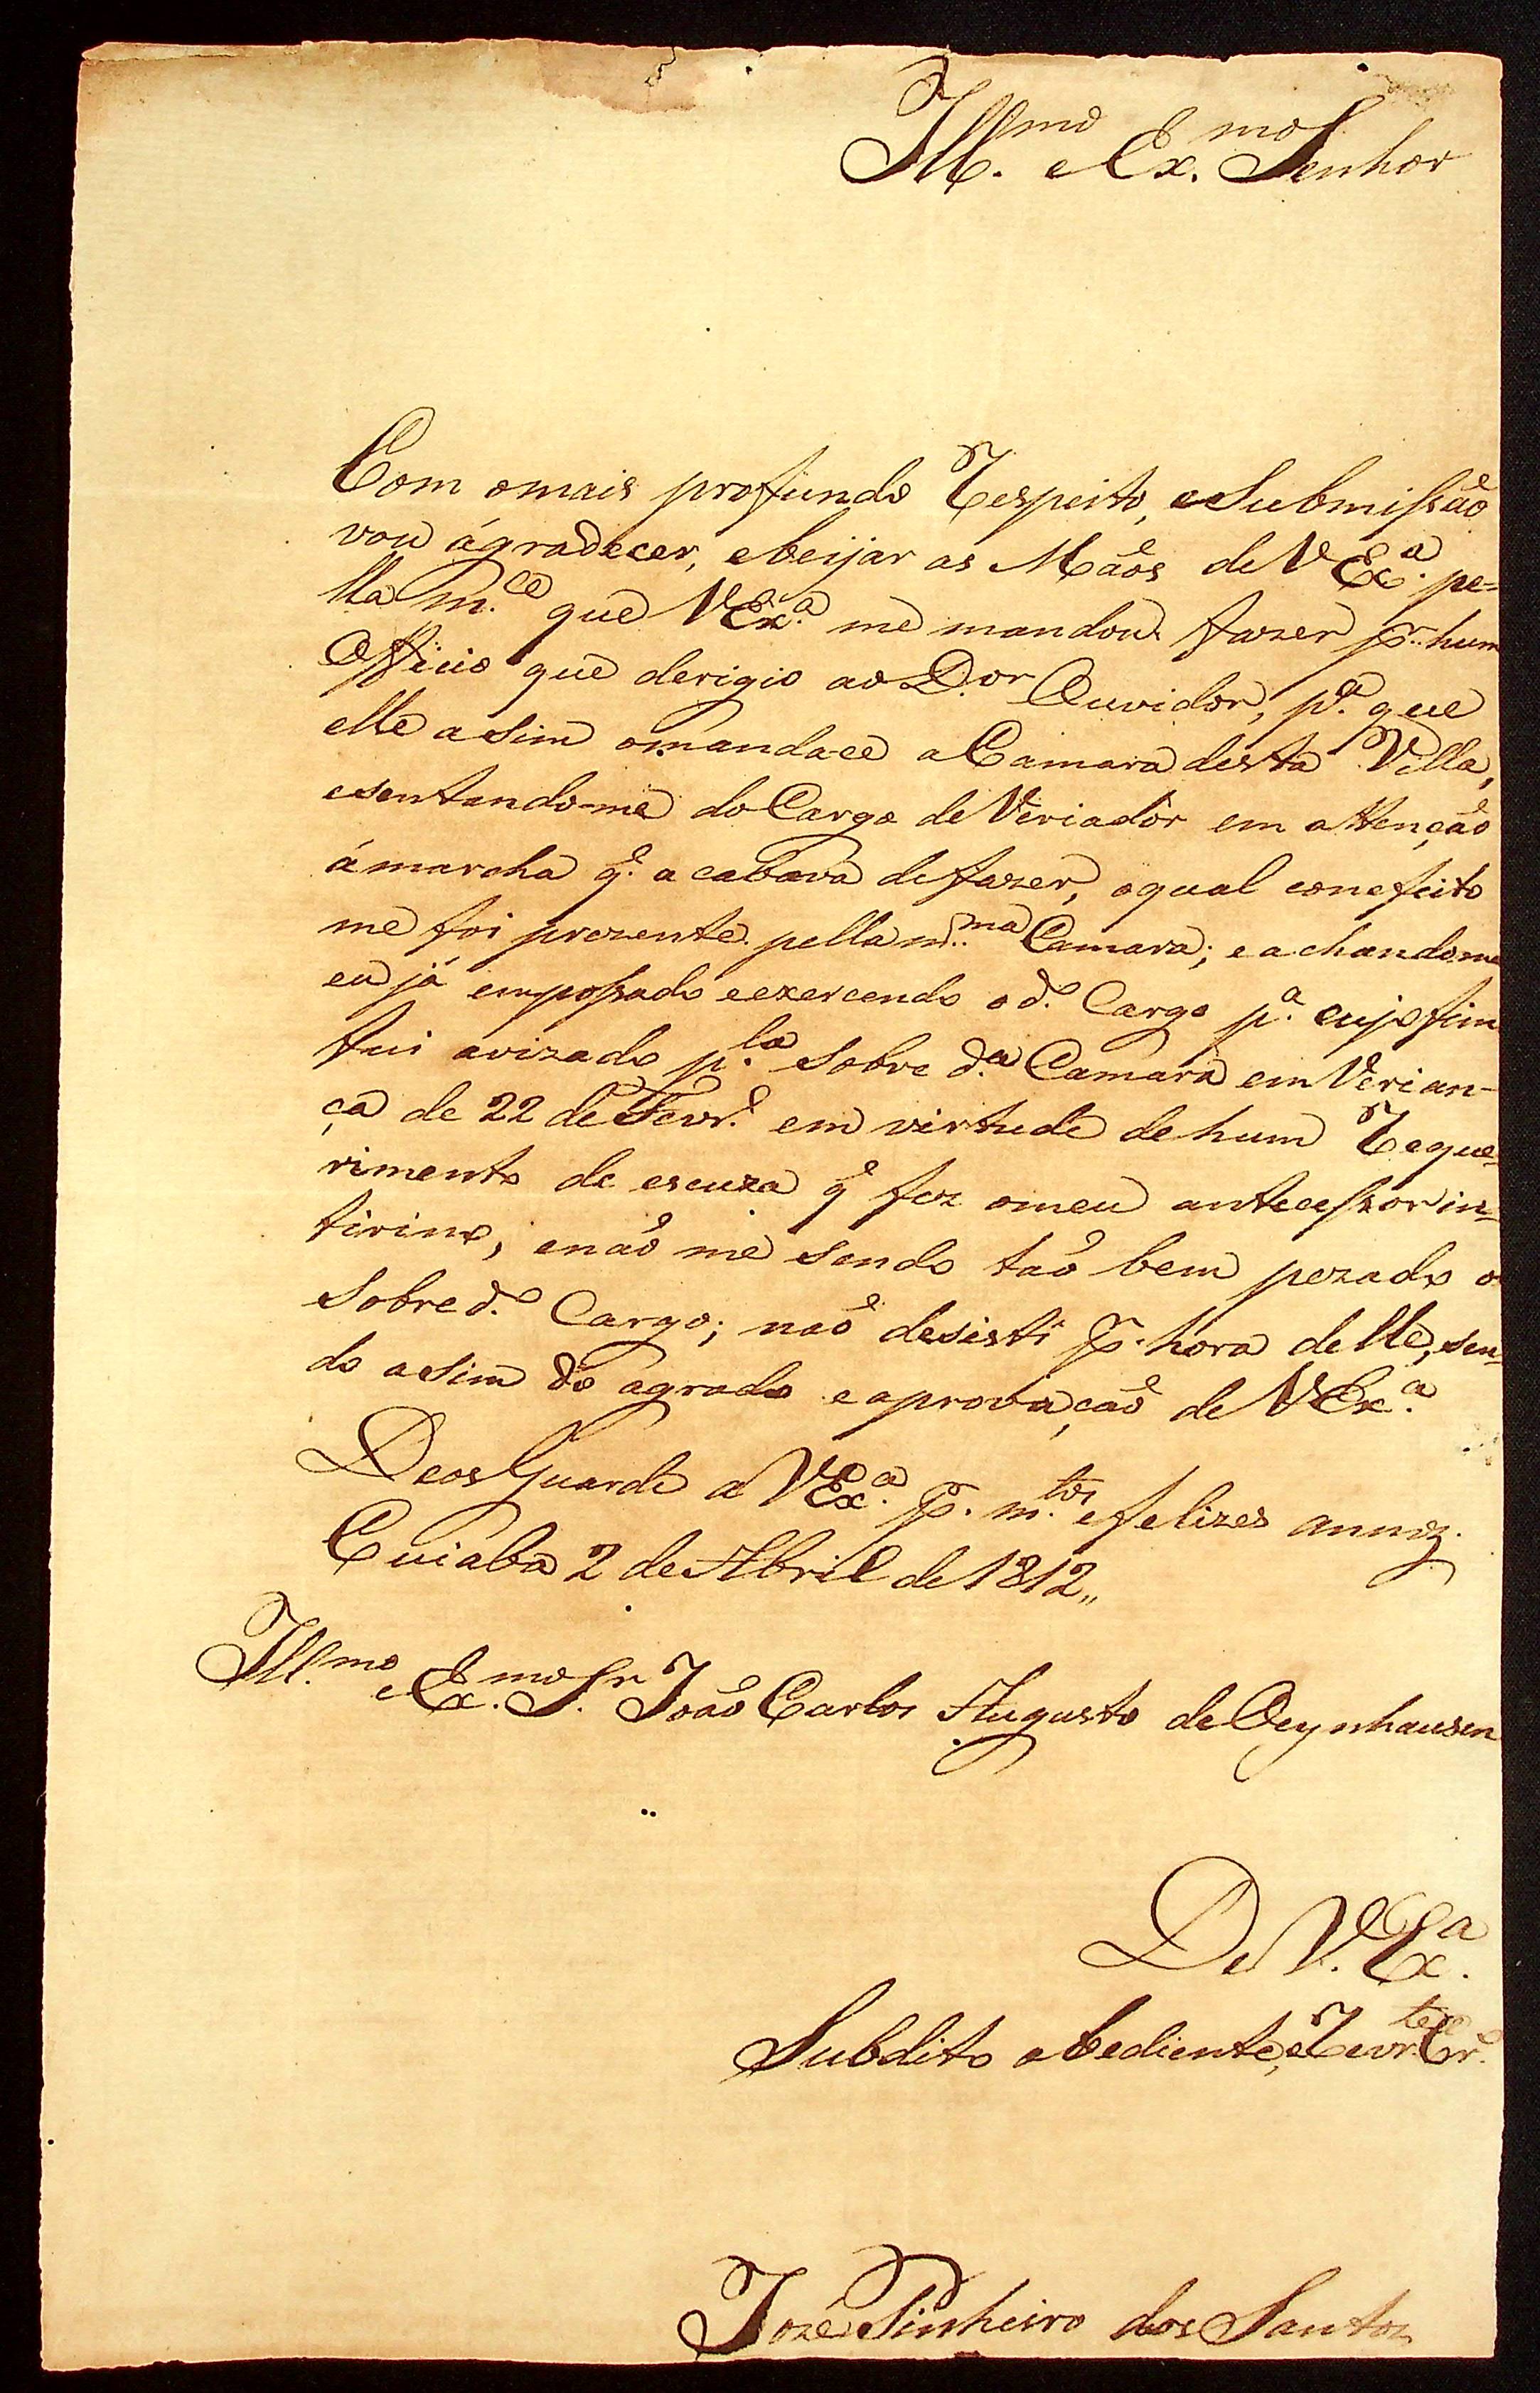 Ill.mo e Ex.mo Senhor
Com omais profundo Respeito, eSubmissaõ
vou ágradecer, ebeijar as Maõs de VEx.a pe-
lla m.ce que VEx.a me mandou fazer p.r hum
Officio que derigio ao D.or Ouvidor, p.a que
elle asim omandace aCamara desta Villa,
esentando-me do Cargo de Veriador em attençaõ
ámarcha q.e acabava defazer, oqual comefeito
me foi prezente pella m.ma Camara; e achandome
eu já empossado eexercendo o d.o Cargo p.a cujo fim
fui avizado p.la sobre d.a Camara em Verian-
ça de 22 de Fevr.o em virtude de hum Reque-
rimento de escuza q.e fez omeu antecessor in-
tirino, enaõ me sendo taõ bem pezado o
Sobred.o Cargo; naõ desisti p.r hora delle, sen-
do asim do agrado eaprovaçaõ de VEx.a
Deos Guarde a VEx.a p.r m.tos efelizes annoz.
Cuiaba 2 de Abril de 1812,,
Ill.mo e Ex.mo S.r Joaõ Carlos Augusto de Oeynhausen
De V. Ex.a
Subdito obediente, e Rever.te Cr.o
Jozé Pinheiro dos Santos